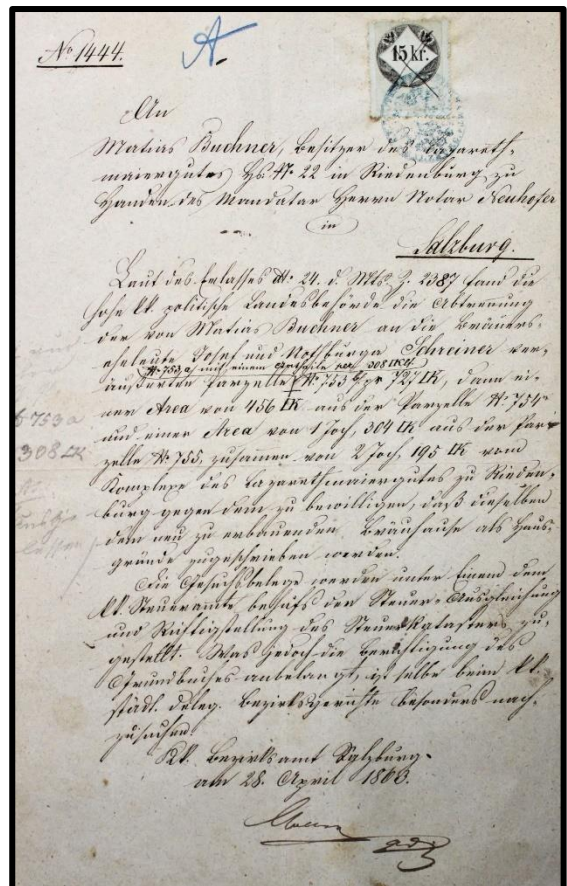 No 1444.
A.
15 kr.
An
Matias Buchner, Besitzer des Lazareth-
maiergutes Hs. No 22 in Riedenburg, zu
Handen des Mandatar Herrn Notar Neuhofer
in
Salzburg.
Laut des Erlasses 24. d. Mts. Z. 2387 fand die
hohe kk. politische Landesbehörde die Abtrennung
der von Matias Buchner an die Bräuers-
eheleute Josef und Nothburga Schreiner ver-
No 753 a mit einem per 308 □K
äußerten Parzelle No 753 pr 727 □K, dann ei-
ner Area von 456 □K aus der Parzelle No 754
und einer Area von 1 Joch, 304 □K aus der Par-
753 a
zelle No 755, zusammen von 2 Joch, 195 □K vom
308 □K
Komplexe des Lazarethmaiergutes zu Rieden-
burg gegen dem zu bewilligen, daß dieselben
dem neu zu erbauenden Bräuhause als Haus-
gründe zugeschrieben werden.
Die Gesuchsbelege werden unter Einem dem
kk. Steueramte behufs der Steuer-Ausgleichung
und Richtigstellung des Steuerkatasters zu-
gestellt. Was jedoch die Berichtigung des
Grundbuches anbelangt, ist selbe beim kk.
städt. deleg. Bezirksgerichte besonders nach-
zusuchen.
KK. Bezirksamt Salzburg.
am 28. April 1863.